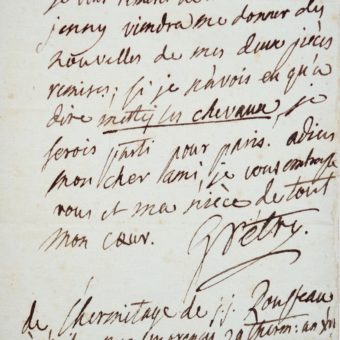 je vous remercie de
jenny viendra me donner des
nouvelles de mes deux pièces
remises; si je n'avois eu qu'a
dire mettés les chevaux, je
serois parti pour paris. adieu
mon cher ami, je vous embrasse
vous et ma nièce de tout
mon cœur. Grétry.
de l'hermitage de j. j. Rousseau
therm: an